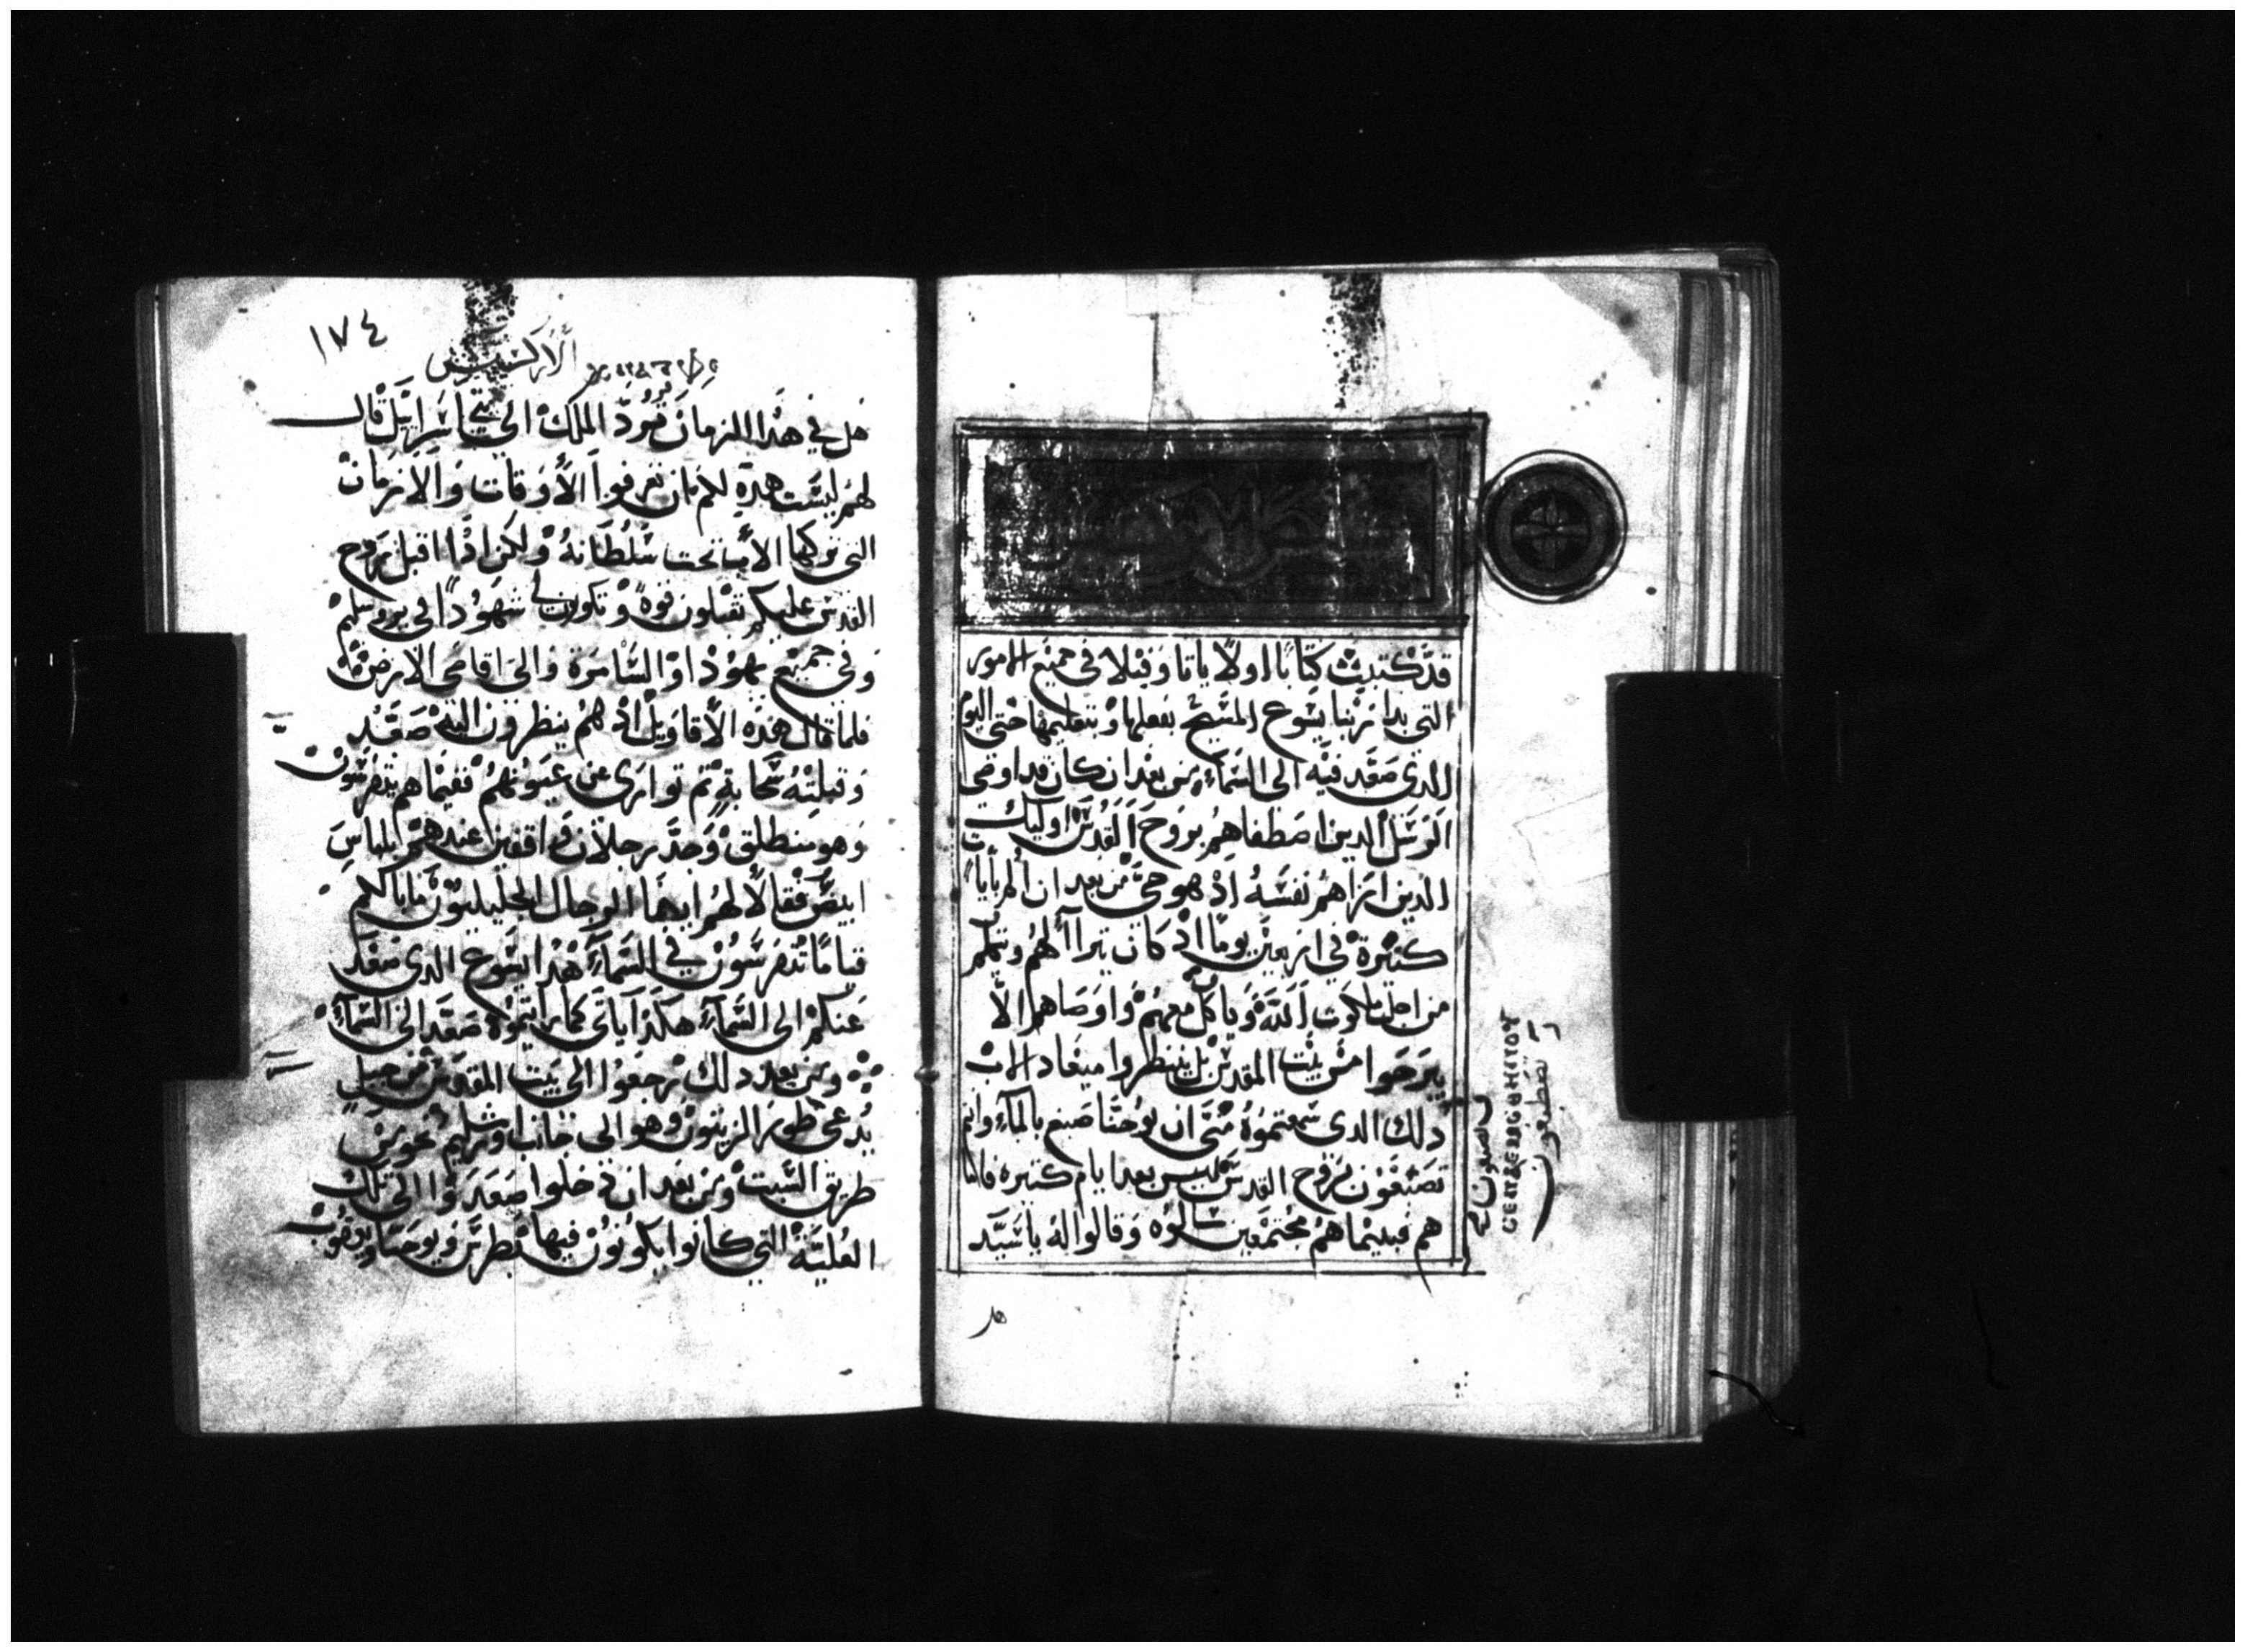 قد كتبت كتابا اولا ياتا وفيلا في جميع الامور
التي بدا ربنا يسوع المسيح بفعلها وبتعليمها حتى اليوم
الذي صعد فيه الى السماء من بعد ان كان قد اوصى
الرسل الدين اصطفاهم بروح القدس اوليك
الذين اراهم نفسه اذ هو حي من بعد ان الم بايات
كثيرة في اربعين يوما اذ كان يتراا لهم ويتكلم
من اجل ملكوت الله وياكل معهم واوصاهم الا
يبرحوا من بيت المقدس بل ينتظروا ميعاد الاب
ذلك الدى سمعتموه منى ان يوحنا صبغ بالماء وانتم
تصبغون بروح القدس ليس بعد ايام كثيره فاما
هم فبينما هم مجتمعين سالوه وقالوا له يا سيد
تصطبغون
هل
١٧٤
الابركسيس
هل في هذا الزمان ترد الملك الى بني اسرائيل قال
لهم ليست هذه لكم ان تعرفوا الأوقات والازمان
التي تركها الاب تحت سلطانه ولكن اذا اقبل روح
القدس عليكم تقبلون قوة وتكونون لي شهودا في يروسلم
وفي جميع يهودا والسامرة والى اقاصى الارض
فلما قال هذه الأقاويل اذ هم ينظرون اليه صعد
وقبلته سحابة ثم توارى عن عيونهم ففيما هم يتفرسون
وهو منطلق وجد رجلان واقفين عندهم بلباس
ابيض فقالا لهم ايها الرجال الجليليون ما بالكم
قياما تتفرسون في السماء هذا يسوع الدى صعد
عنكم الى السماء هكذا ياتى كما رايتموه صعد الى السماء
ومن بعد ذلك رجعوا الى بيت المقدس من جبل
يدعى طور الزيتون وهو الى جانب اورشليم نحو من
طريق السبت ومن بعد ان دخلوا صعدوا الى تلك
العلية التي كانوا يكونون فيها بطرس ويوحنا ويعقوب